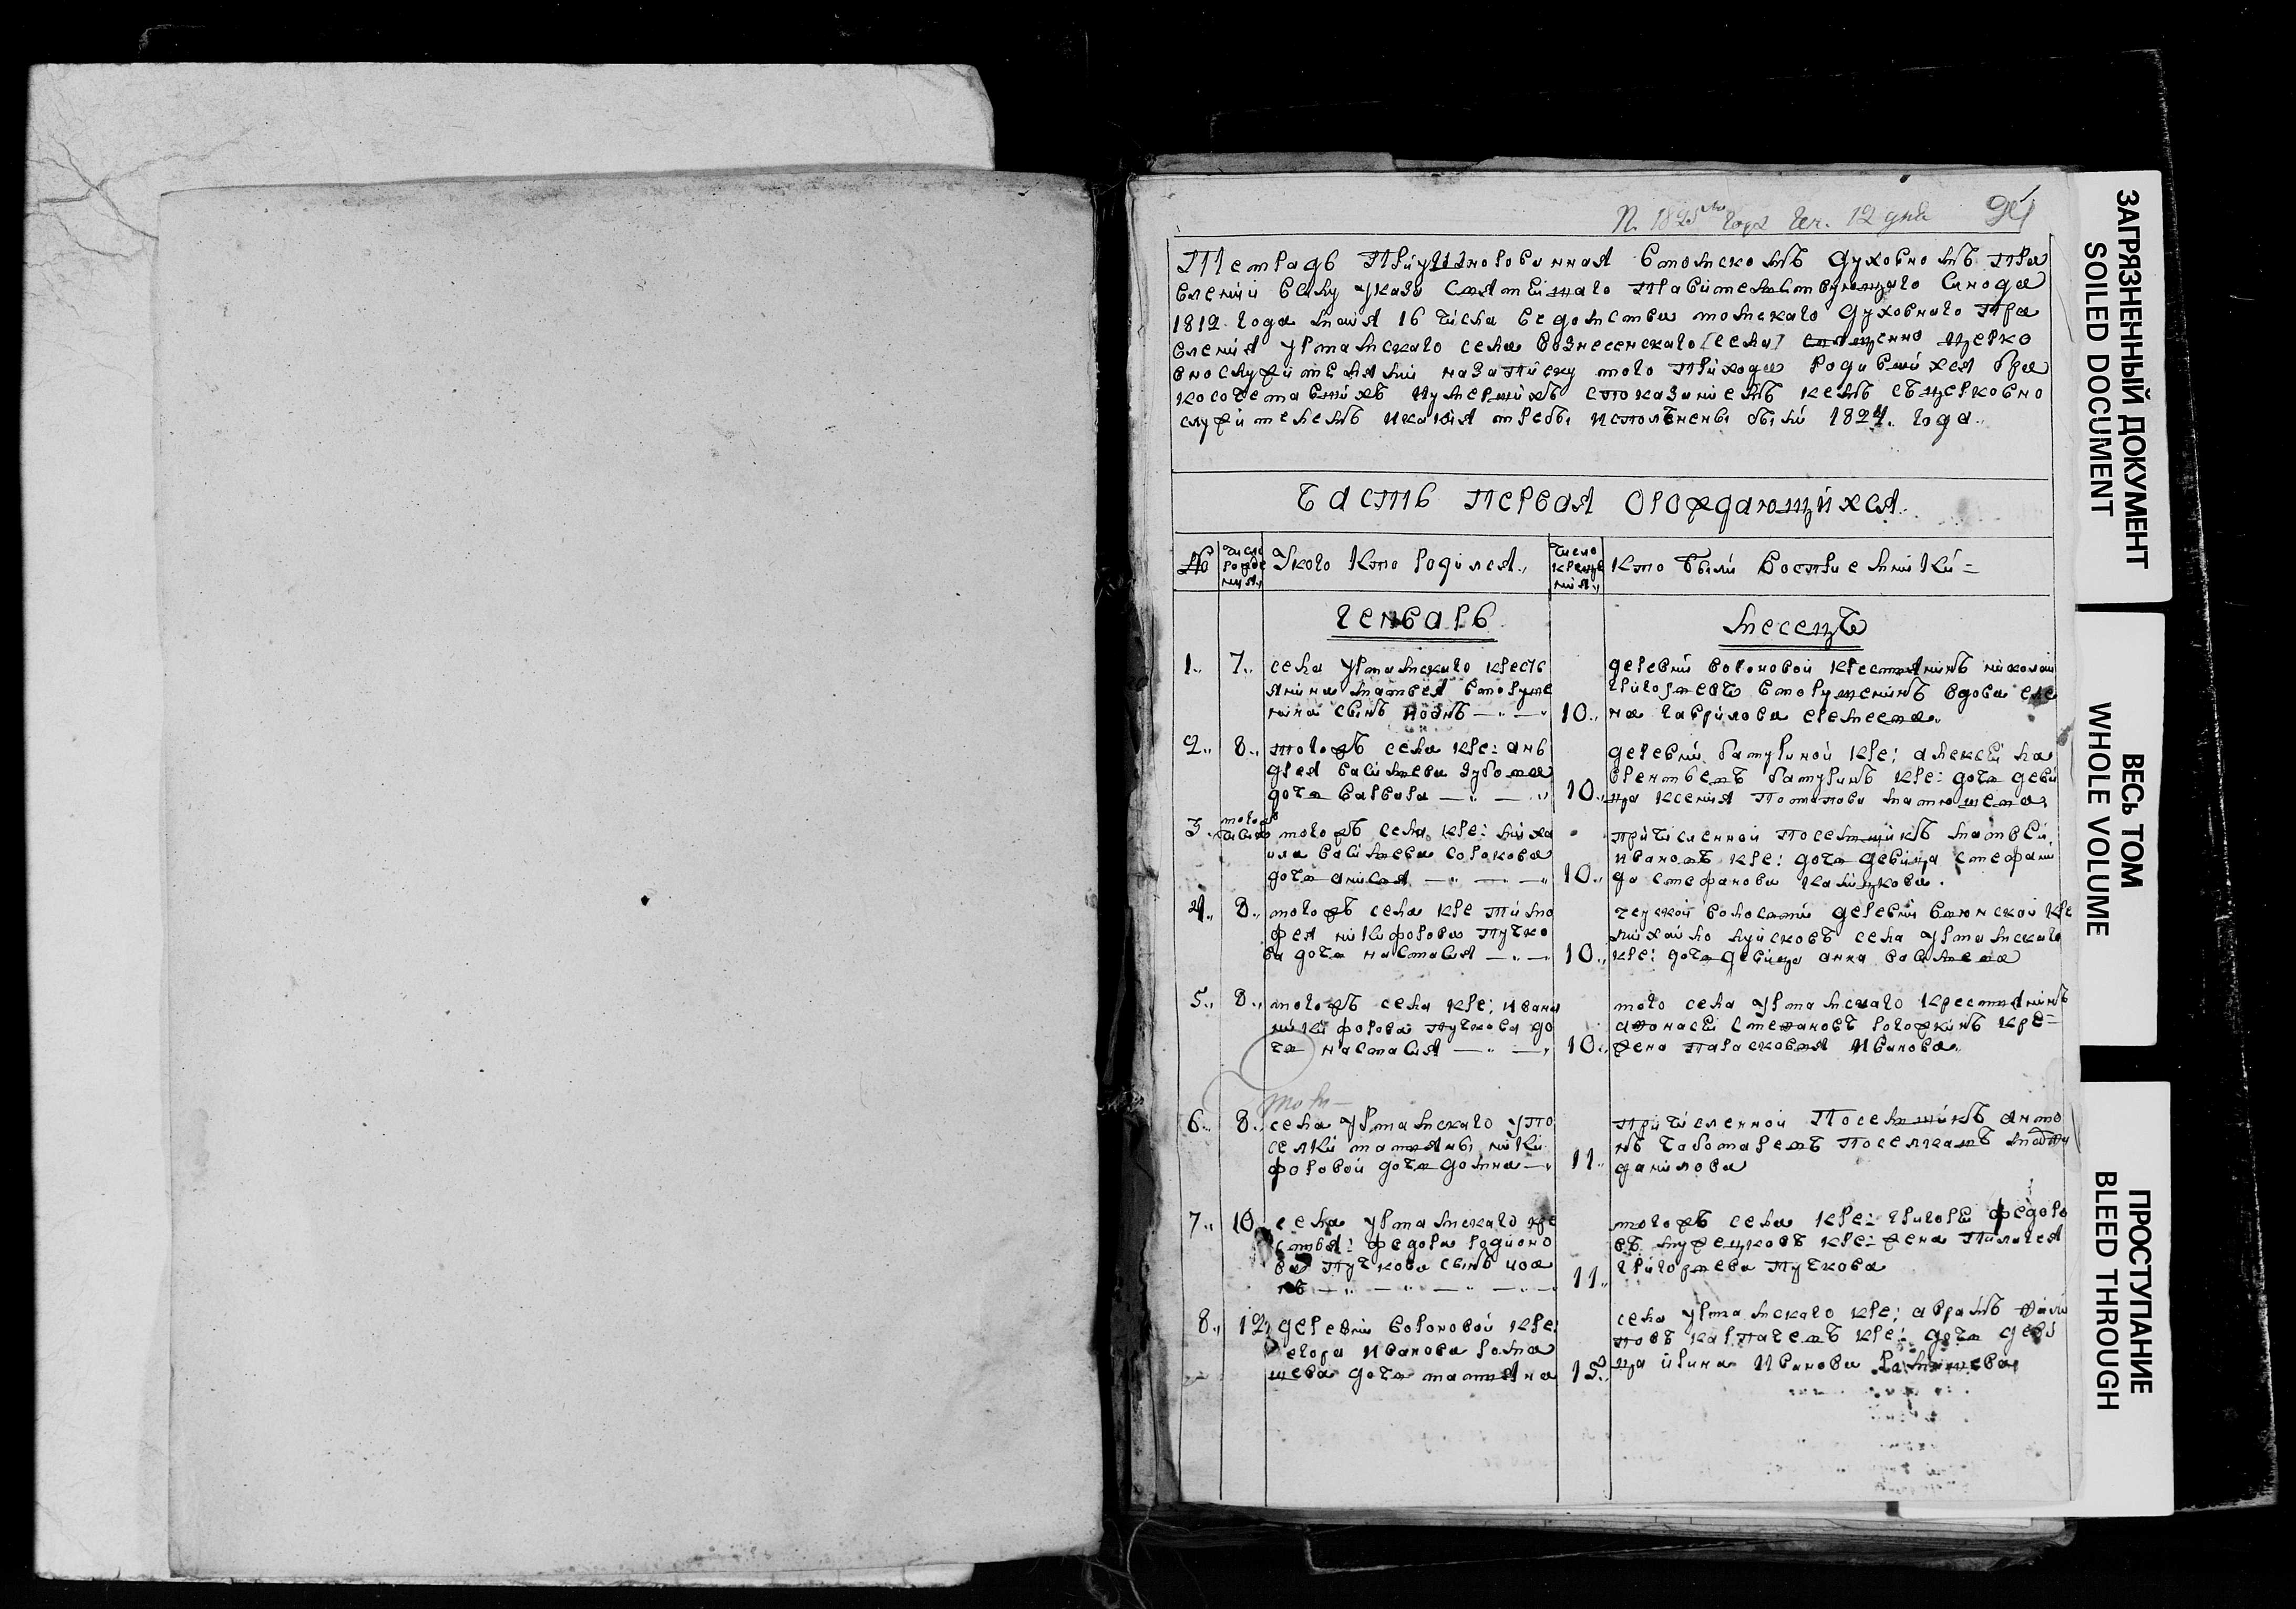 П. 1825го года Ген. 12 дня 94
Тетрадь Приуготовленная втомскомъ духовномъ пра
влении всилу указа святейшаго Правительствующаго Синода
1812 года маия 16 числа ведомства томскаго духовнаго Пра
вления уртамскаго села вознесенскаго [села] священно церко
внослужителями назаписку того Прихода Родившихся бра
косочетавшихъ иумершихъ спочазаниемъ кемъ съцерковно
служителемъ икакия требы исполнены были 1824. года.
Часть первая ораждающихся.
№
число
рожде
ния
Укого Кто родился.
число
креще
ния
Кто были Восприемники =
Генварь
месецъ
1. 7. села уртамскаго кресть
янина матвея вторуше
нина сынъ иоанъ
10.
деревни вороновой крестьянинъ николаи
григорьевъ вторушенинъ вдова еле
на гаврилова
2. 8. тогожъ села кре: анъ
дрея васильева зубова
дочь варвара
10.
деревни батуриной кре: алексей ла
врентьевъ батуринъ кре: дочь деви
ца ксения потапова
3. тогожъ
числа
тогожъ села кре: миха
ила васильева сорокова
дочь анисья
10.
причисленной поселщикъ матвей
ивановъ кре: дочь девица стефани
да стефанова
4. 8. тогожъ села кре тимо
фея никифорова пучко
ва дочь настасия
10.
волости деревни вьюнской кре
михаило села уртамскаго
кре: дочь девица анна васильева
5. 8. тогожъ села кре: ивана
никифорова пучкова до
чь настасия
10.
того села уртамскаго крестьянинъ
афонасей степановъ рогожкинъ кре=
жена парасковья иванова.
6. 8. села уртамскаго упо
селки татьяны ники
форовой дочь домна
11.
причисленной Поселщикъ анто
нъ чеботаревъ
данилова
7. 10. села уртамскаго кре
стья: федора родионо
ва пучкова сынъ иоа
нъ
11.
тогожъ села кре: григорей федоро
въ кре: жена пилагея
григорьева пучкова
8. 12. деревни вороновой кре:
егора иванова рома
шева дочь татьяна
15.
села уртамскаго кре: аврамъ фили
повъ карпачевъ кре: дочь деви
ца ирина иванова
ЗАГРЯЗНЕННЫЙ ДОКУМЕНТ
SOILED DOCUMENT
ВЕСЬ ТОМ
WHOLE VOLUME
ПРОСТУПАНИЕ
BLEED THROUGH